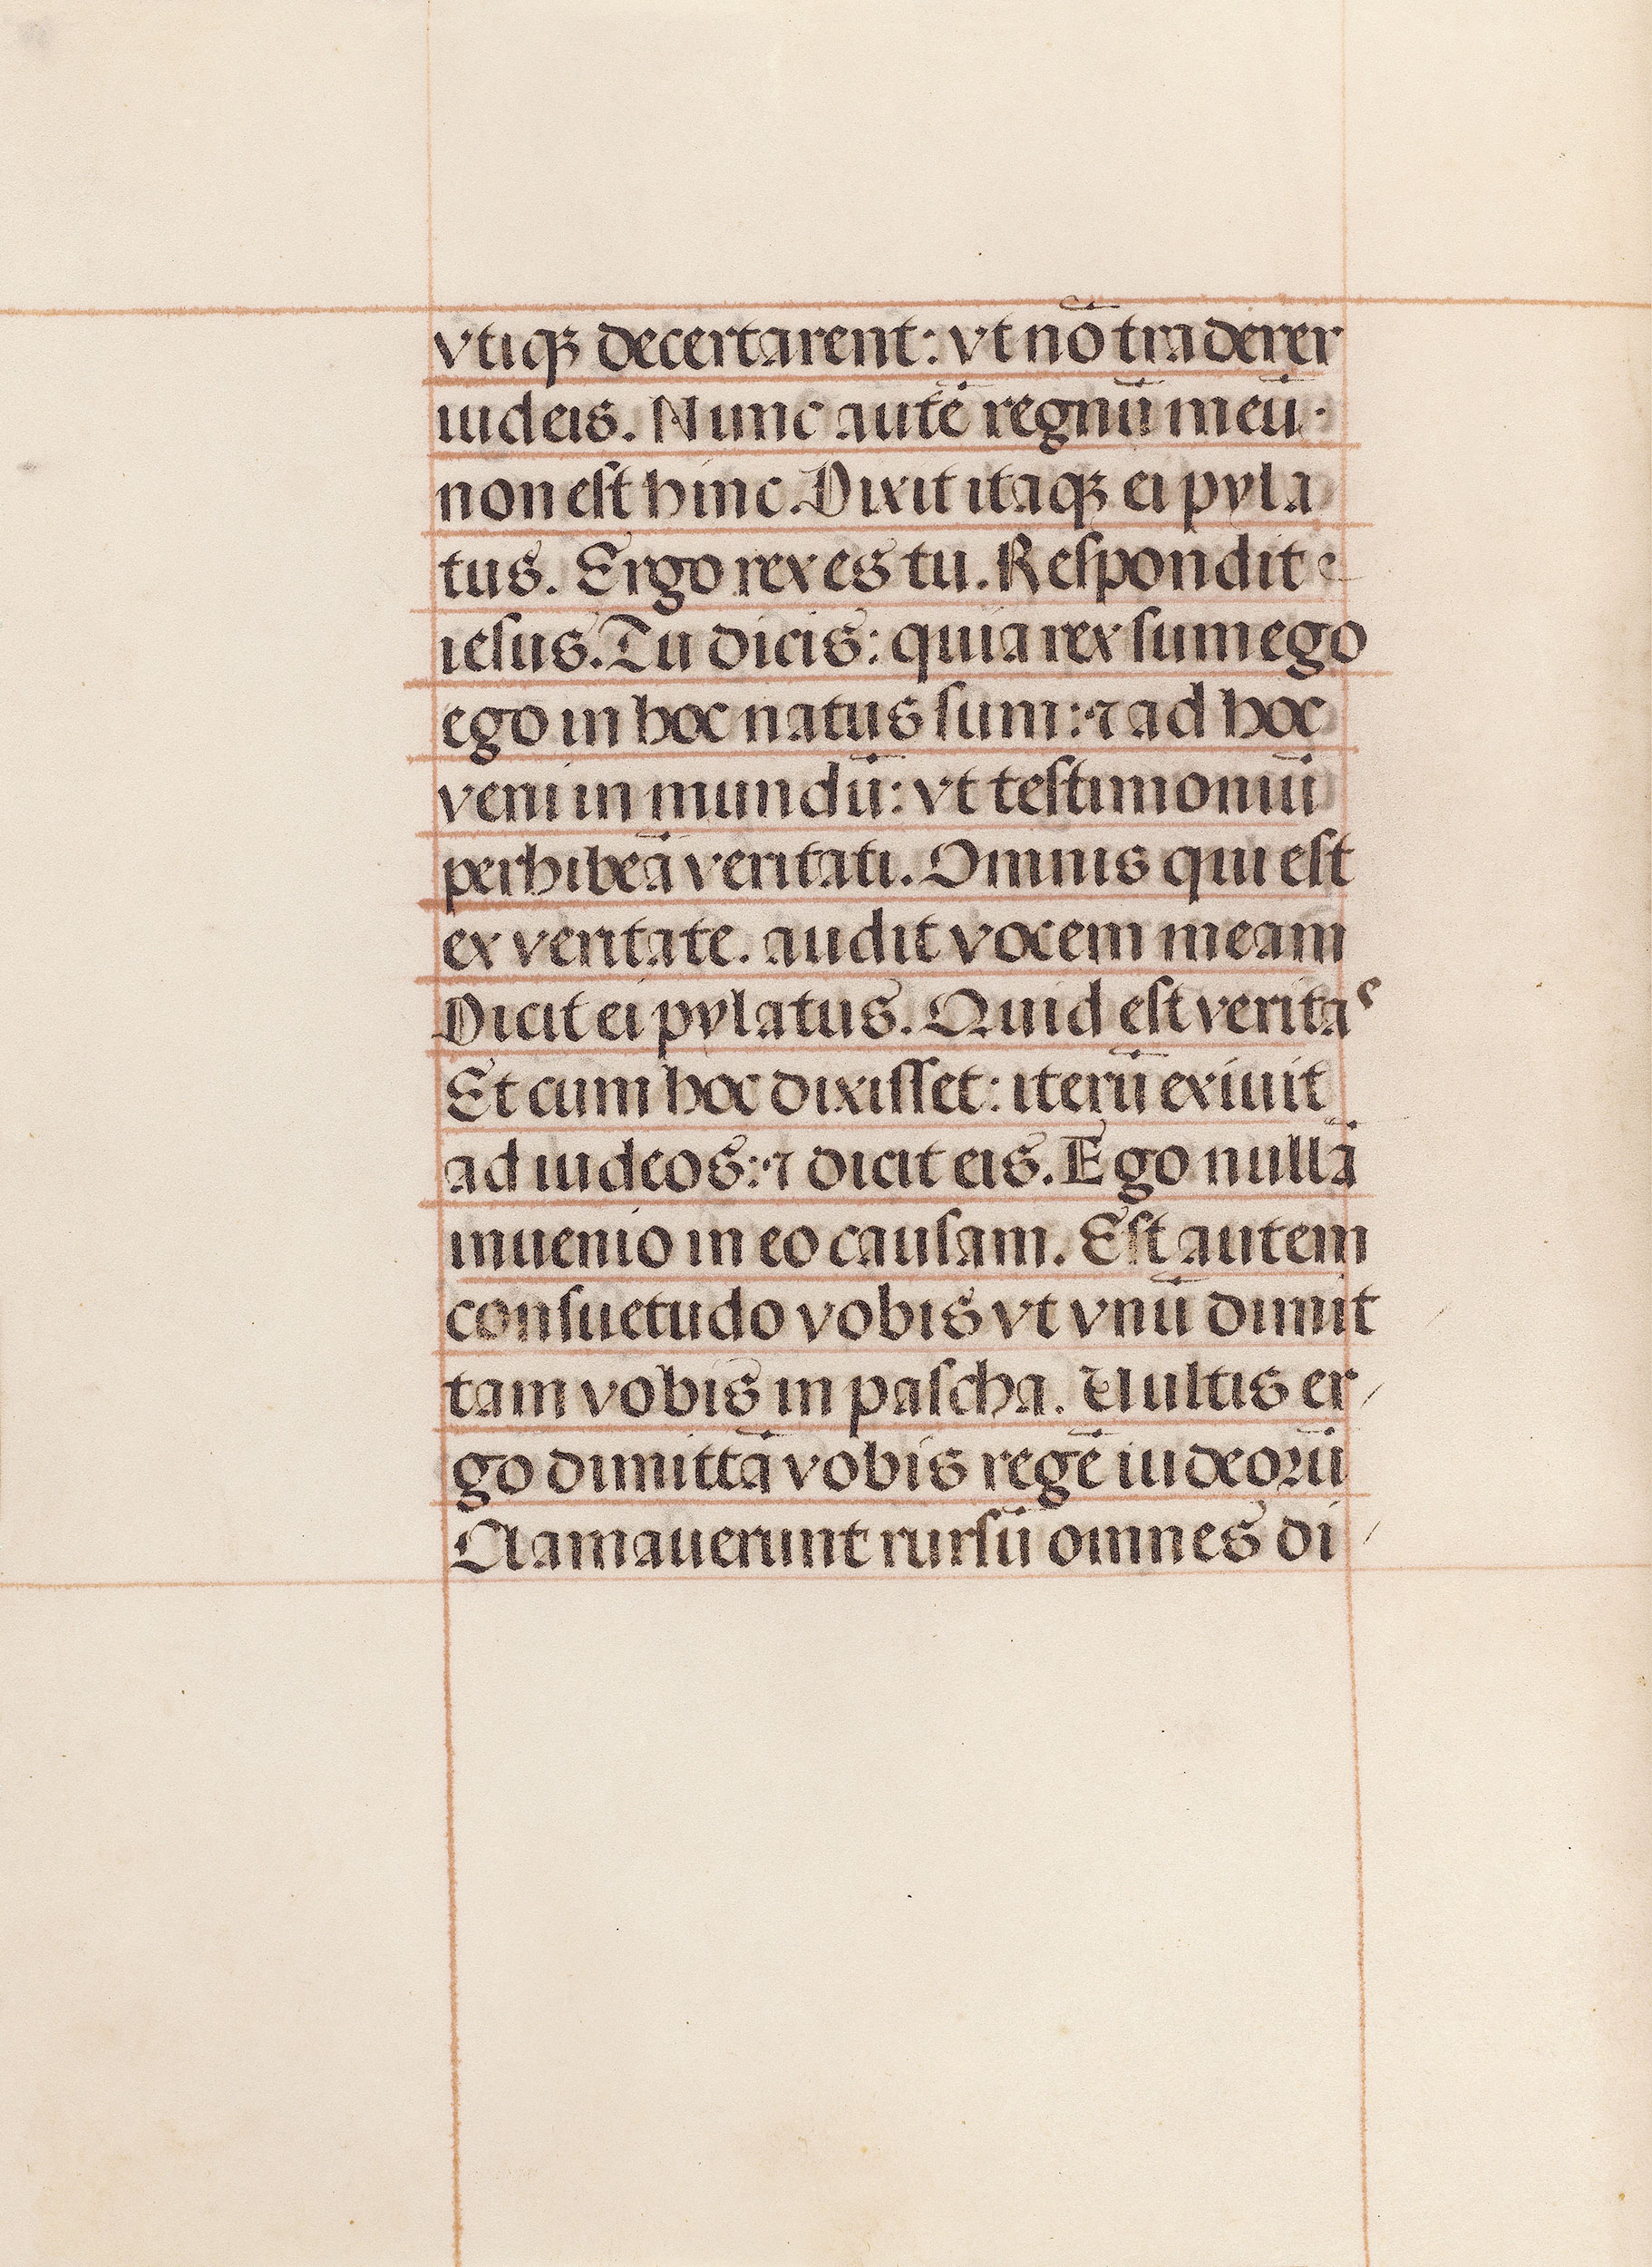 vtiqꝫ decertarent: vt nō traderer
iudeis. Nunc autē regnū meū·
non est hinc. Dixit itaqꝫ ei pyla
tus. Ergo rex es tu. Respondit
iesus. Tu dicis: quia rex sum ego
ego in hoc natus sum: ⁊ ad hoc
veni in mundū: vt testimoniū
perhibeā veritati. Omnis qui est
ex veritate. audit vocem meam
Dicit ei pylatus. Quid est veritas
Et cum hoc dixisset: iterū exiuit
ad iudeos: ⁊ dicit eis. Ego nullā
inuenio in eo causam. Est autem
consuetudo vobis vt vnū dimit
tam vobis in pascha. Uultis er/
go dimittā vobis regē iudeorū
Clamauerunt rursū omnes di/